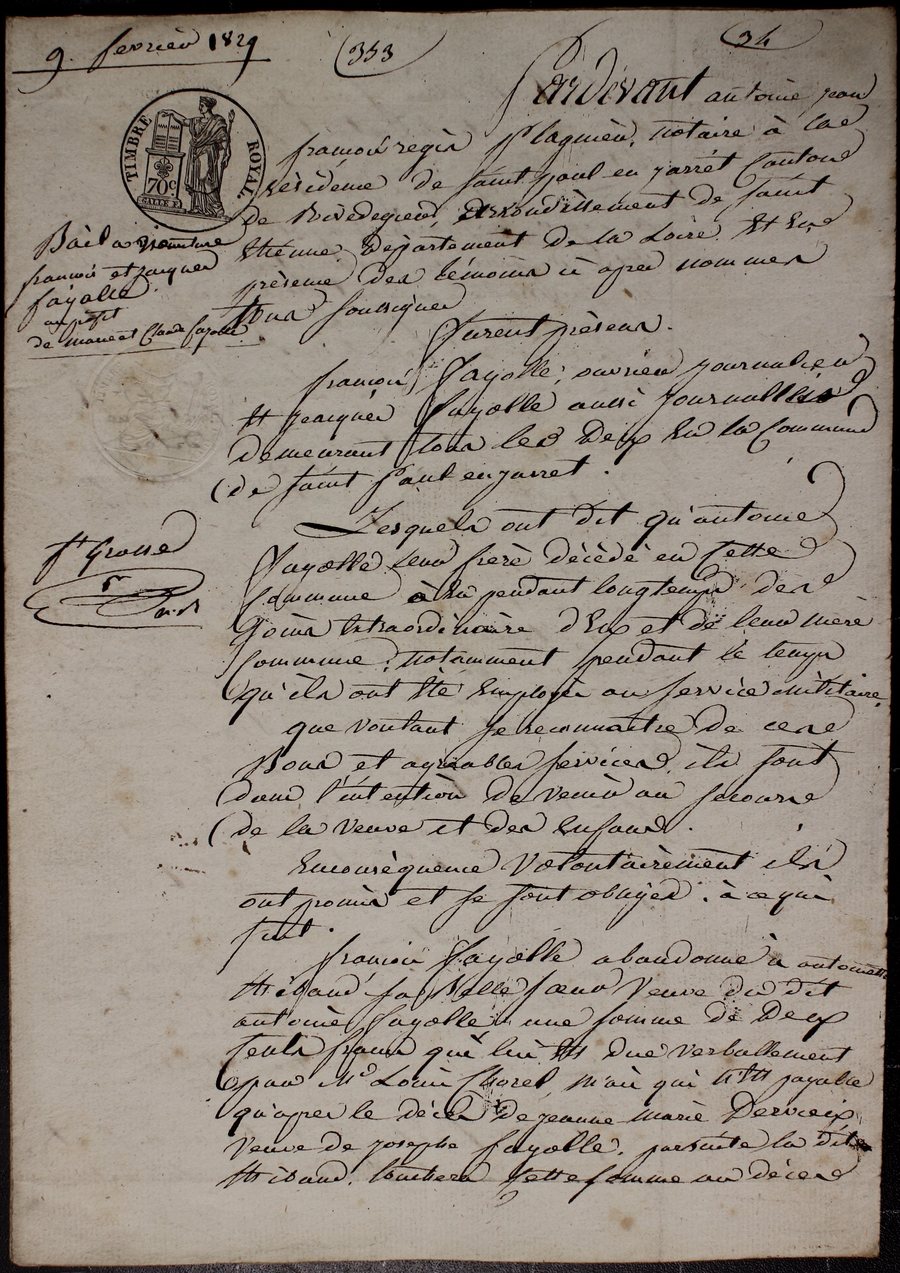 9. fevrier 1829
(353)
34
Pardevant antoine jean
françois regis Plagnieu, notaire à la
résidence de saint paul en jarret Canton
de Rivedegier, arrondissement de saint
Etienne, département de la Loire. Et En
présence des témoins ci apres nommés
Tous soussignés
furent présens.
françois fayolle, ouvrier journalier
Et jacques fayolle aussi journallier
demeurant tous les Deux En la Commune
de saint Paul en jarret.
Lesquels ont dit qu'antoine
fayolle leur frère décédé en Cette
Commune à Eu pendant longtemps des
soins Extraordinaire d'Eux et de leur mère
Commune, notamment pendant le temps
qu'ils ont été Employés au service militaire,
que voulant se reconnaître de ces
Bons et agréables services, ils sont
dans l'intention de venir au secours
de la veuve et des Enfans.
En conséquence volontairement ils
ont promis et se sont obligés, à ce qui
suit.
françois fayolle abandonne à antoinette
sa Belle sœur veuve du dit
antoine fayolle une somme de Deux
Cents francs qui lui Est due verballement
par Mr Louis Chorel, mais qui n'Est payable
qu'apres le décès de jeanne marie Dervieux
veuve de joseph fayolle. par suite la dite
touchera Cette somme au décès
TIMBRE ROYAL
70c
françois et jacques
fayolle
au profit
de marie et Claude fayolle
Grosse